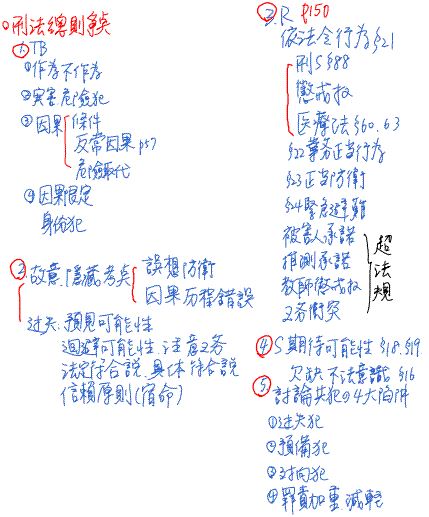 刑法總則爭點
1. TB
①作為不作為
②實害危險犯
③因果 條件
反常因果 p57
危險取代
④因果認定
身份犯
2. 故意 隱藏考點 誤想防衛
因果历程錯誤
过失: 預見可能性
迴避可能性 注意义务
法定符合說 具体符合說
信賴原則(宿命)
3. R P150
依法令行為§21
刑S§88
懲戒权
医療法§60.63
§22業务正当行為
§23正当防衛
§24緊急避難
被害人承諾
推測承諾
教師懲戒权
义务衝突
超法規
4. S期待可能性 §18.§19
欠缺不法意識 §16
5. 討論共犯の4大陷阱
①过失犯
②預備犯
③对向犯
④罪責加重減輕